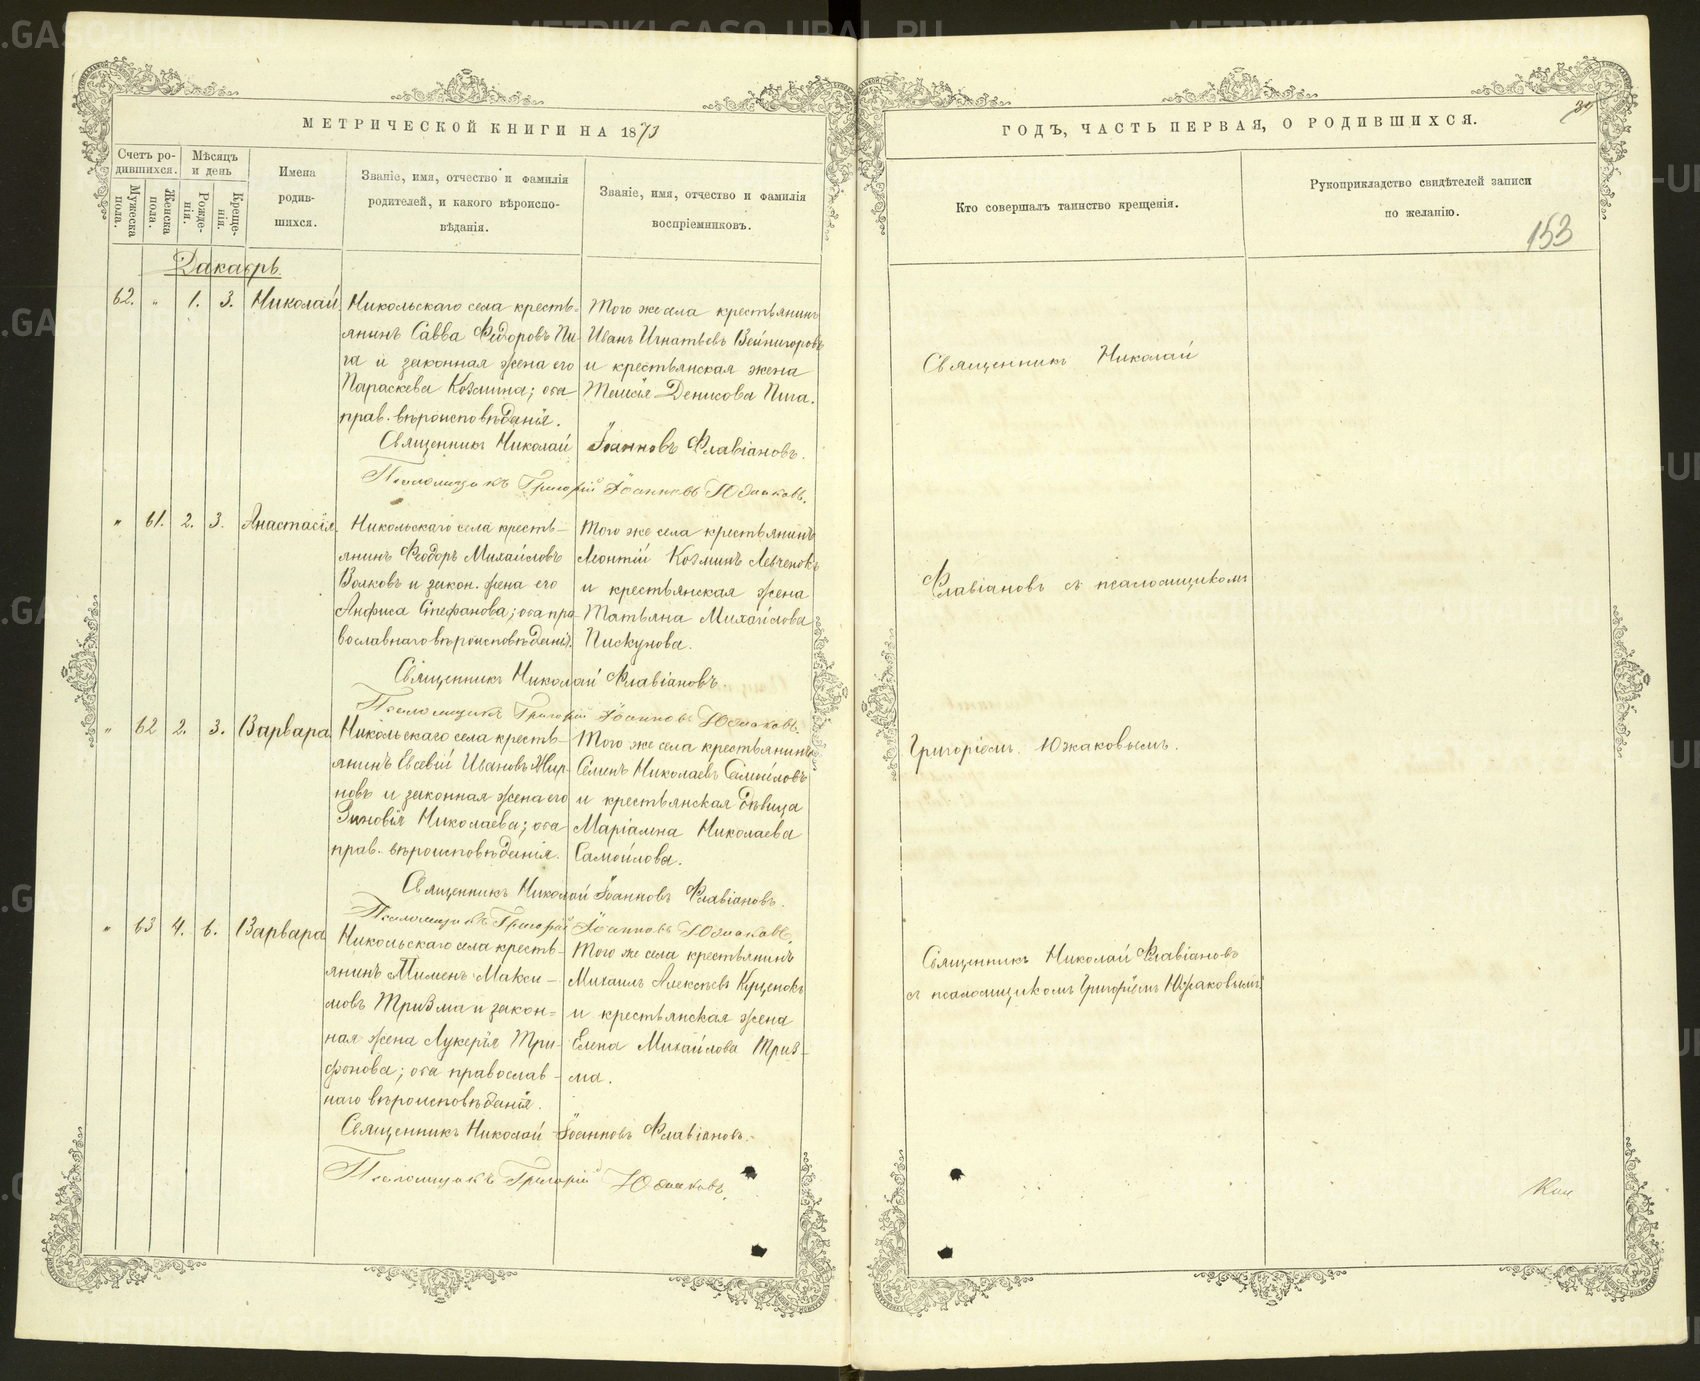 МЕТРИЧЕСКОЙ КНИГИ НА 1873
Счетъ ро-
дившихся.
Мѣсяцъ
и день
Мужеска
пола.
Женска
пола.
Рожде-
нія.
Креще-
нія.
Имена
родив-
шихся.
Званіе, имя, отчество и фамилія
родителей, и какого вѣроиспо-
вѣданія.
Званіе, имя, отчество и фамилія
воспріемниковъ.
Декабрь
62. " 1. 3. Николай.
Никольскаго села кресть-
янинъ Савва Федоровъ Пи-
га и законная жена его
Параскева Козмина; оба
прав. вѣроисповѣданія.
Того же села крестьянинъ
Иванъ Игнатьевъ
и крестьянская жена
Денисова Пига.
Священникъ Николай Іоанновъ Флавіановъ.
Псаломщикъ Григорій Іоанновъ Южаковъ.
" 61. 2. 3. Анастасія.
Никольскаго села кресть-
янинъ Феодоръ Михайловъ
Волковъ и закон. жена его
Анфиса Стефанова; оба пра-
вославнаго вѣроисповѣданія.
Того же села крестьянинъ
Леонтій Козминъ Левченокъ
и крестьянская жена
Татьяна Михайлова
Пискунова.
Священникъ Николай Флавіановъ.
Псаломщикъ Григорій Іоанновъ Южаковъ.
" 62 2. 3. Варвара
Никольскаго села кресть-
янинъ Евсевій Ивановъ Жир-
новъ и законная жена его
Зиновія Николаева; оба
прав. вѣроисповѣданія.
Того же села крестьянинъ
Семенъ Николаевъ Самойловъ
и крестьянская дѣвица
Маріамна Николаева
Самойлова.
Священникъ Николай Іоанновъ Флавіановъ.
Псаломщикъ Григорій Іоанновъ Южаковъ.
" 63 4. 6. Варвара
Никольскаго села кресть-
янинъ Пименъ Макси-
мовъ Тризма и закон-
ная жена Лукерія Три-
фонова; оба православ-
наго вѣроисповѣданія.
Того же села крестьянинъ
Михаилъ Алексѣевъ Куценокъ
и крестьянская жена
Елена Михайлова Триз-
ма.
Священникъ Николай Іоанновъ Флавіановъ.
Псаломщикъ Григорій Южаковъ.
ГОДЪ, ЧАСТЬ ПЕРВАЯ, О РОДИВШИХСЯ.
Кто совершалъ таинство крещенія.
Рукоприкладство свидѣтелей записи
по желанію.
153
Священникъ Николай
Флавіановъ съ псаломщикомъ
Григоріемъ Южаковымъ.
Священникъ Николай Флавіановъ
съ псаломщикомъ Григоріемъ Южаковымъ.
METRIKI.GASO-URAL.RU